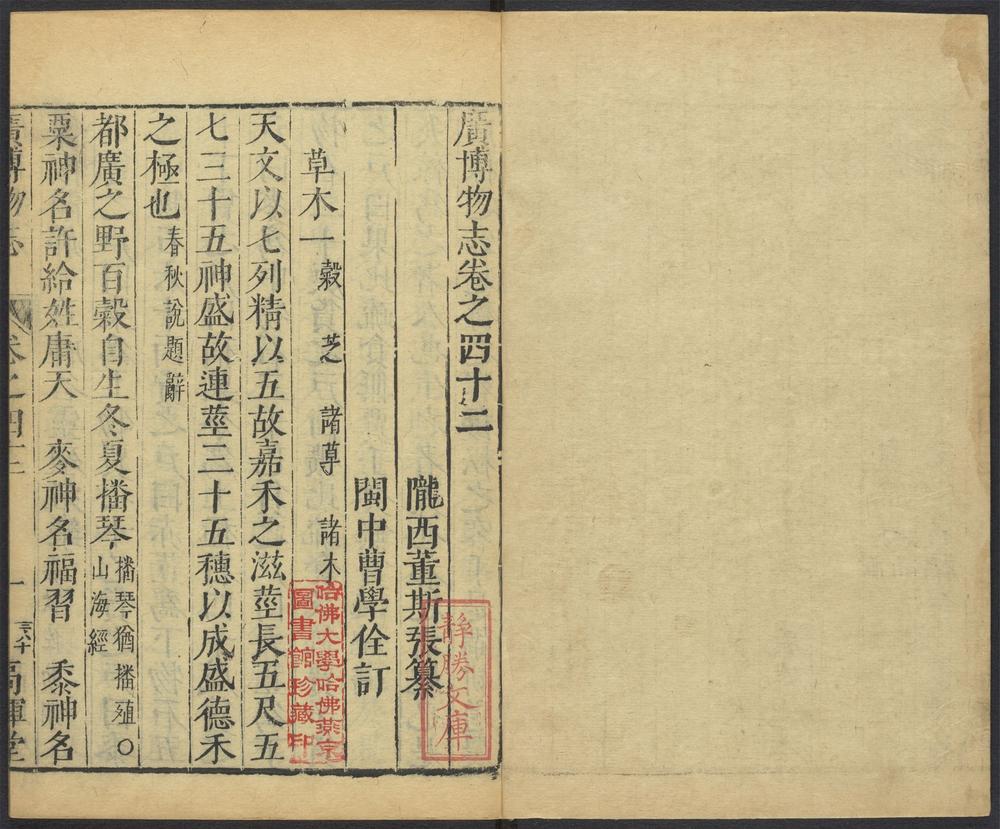 廣博物志卷之四十二
隴西董斯張纂
閩中曹學佺訂
草木一 穀 芝 諸草 諸木
天文以七列精以五故嘉禾之滋莖長五尺五
七三十五神盛故連莖三十五穗以成盛德禾
之極也 春秋說題辭
都廣之野百穀自生冬夏播琴 播琴猶播殖 山海經 ○
粟神名許給姓庸天 麥神名福習 黍神名
廣博物志 卷之四十二 一 高暉堂
靜勝文庫
哈佛大學哈佛燕京
圖書館珍藏印